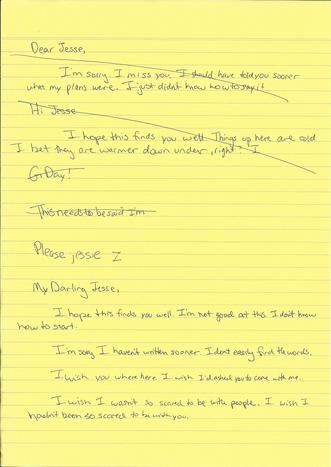 Dear Jesse,
I'm sorry. I miss you. I should have told you sooner
what my plans were. I just didn't know how to say it
Hi Jesse
I hope this finds you well. Things up here are cold
I bet they are warmer down under, right? I
G'Day!
This needs to be said I'm
Please, Jesse I
My Darling Jesse,
I hope this finds you well. I'm not good at this I don't know
how to start.
I'm sorry I haven't written sooner. I don't easily find the words.
I wish you where here. I wish I'd asked you to come with me.
I wish I wasn't so scared to be with people. I wish I
hadn't been so scared to be with you.